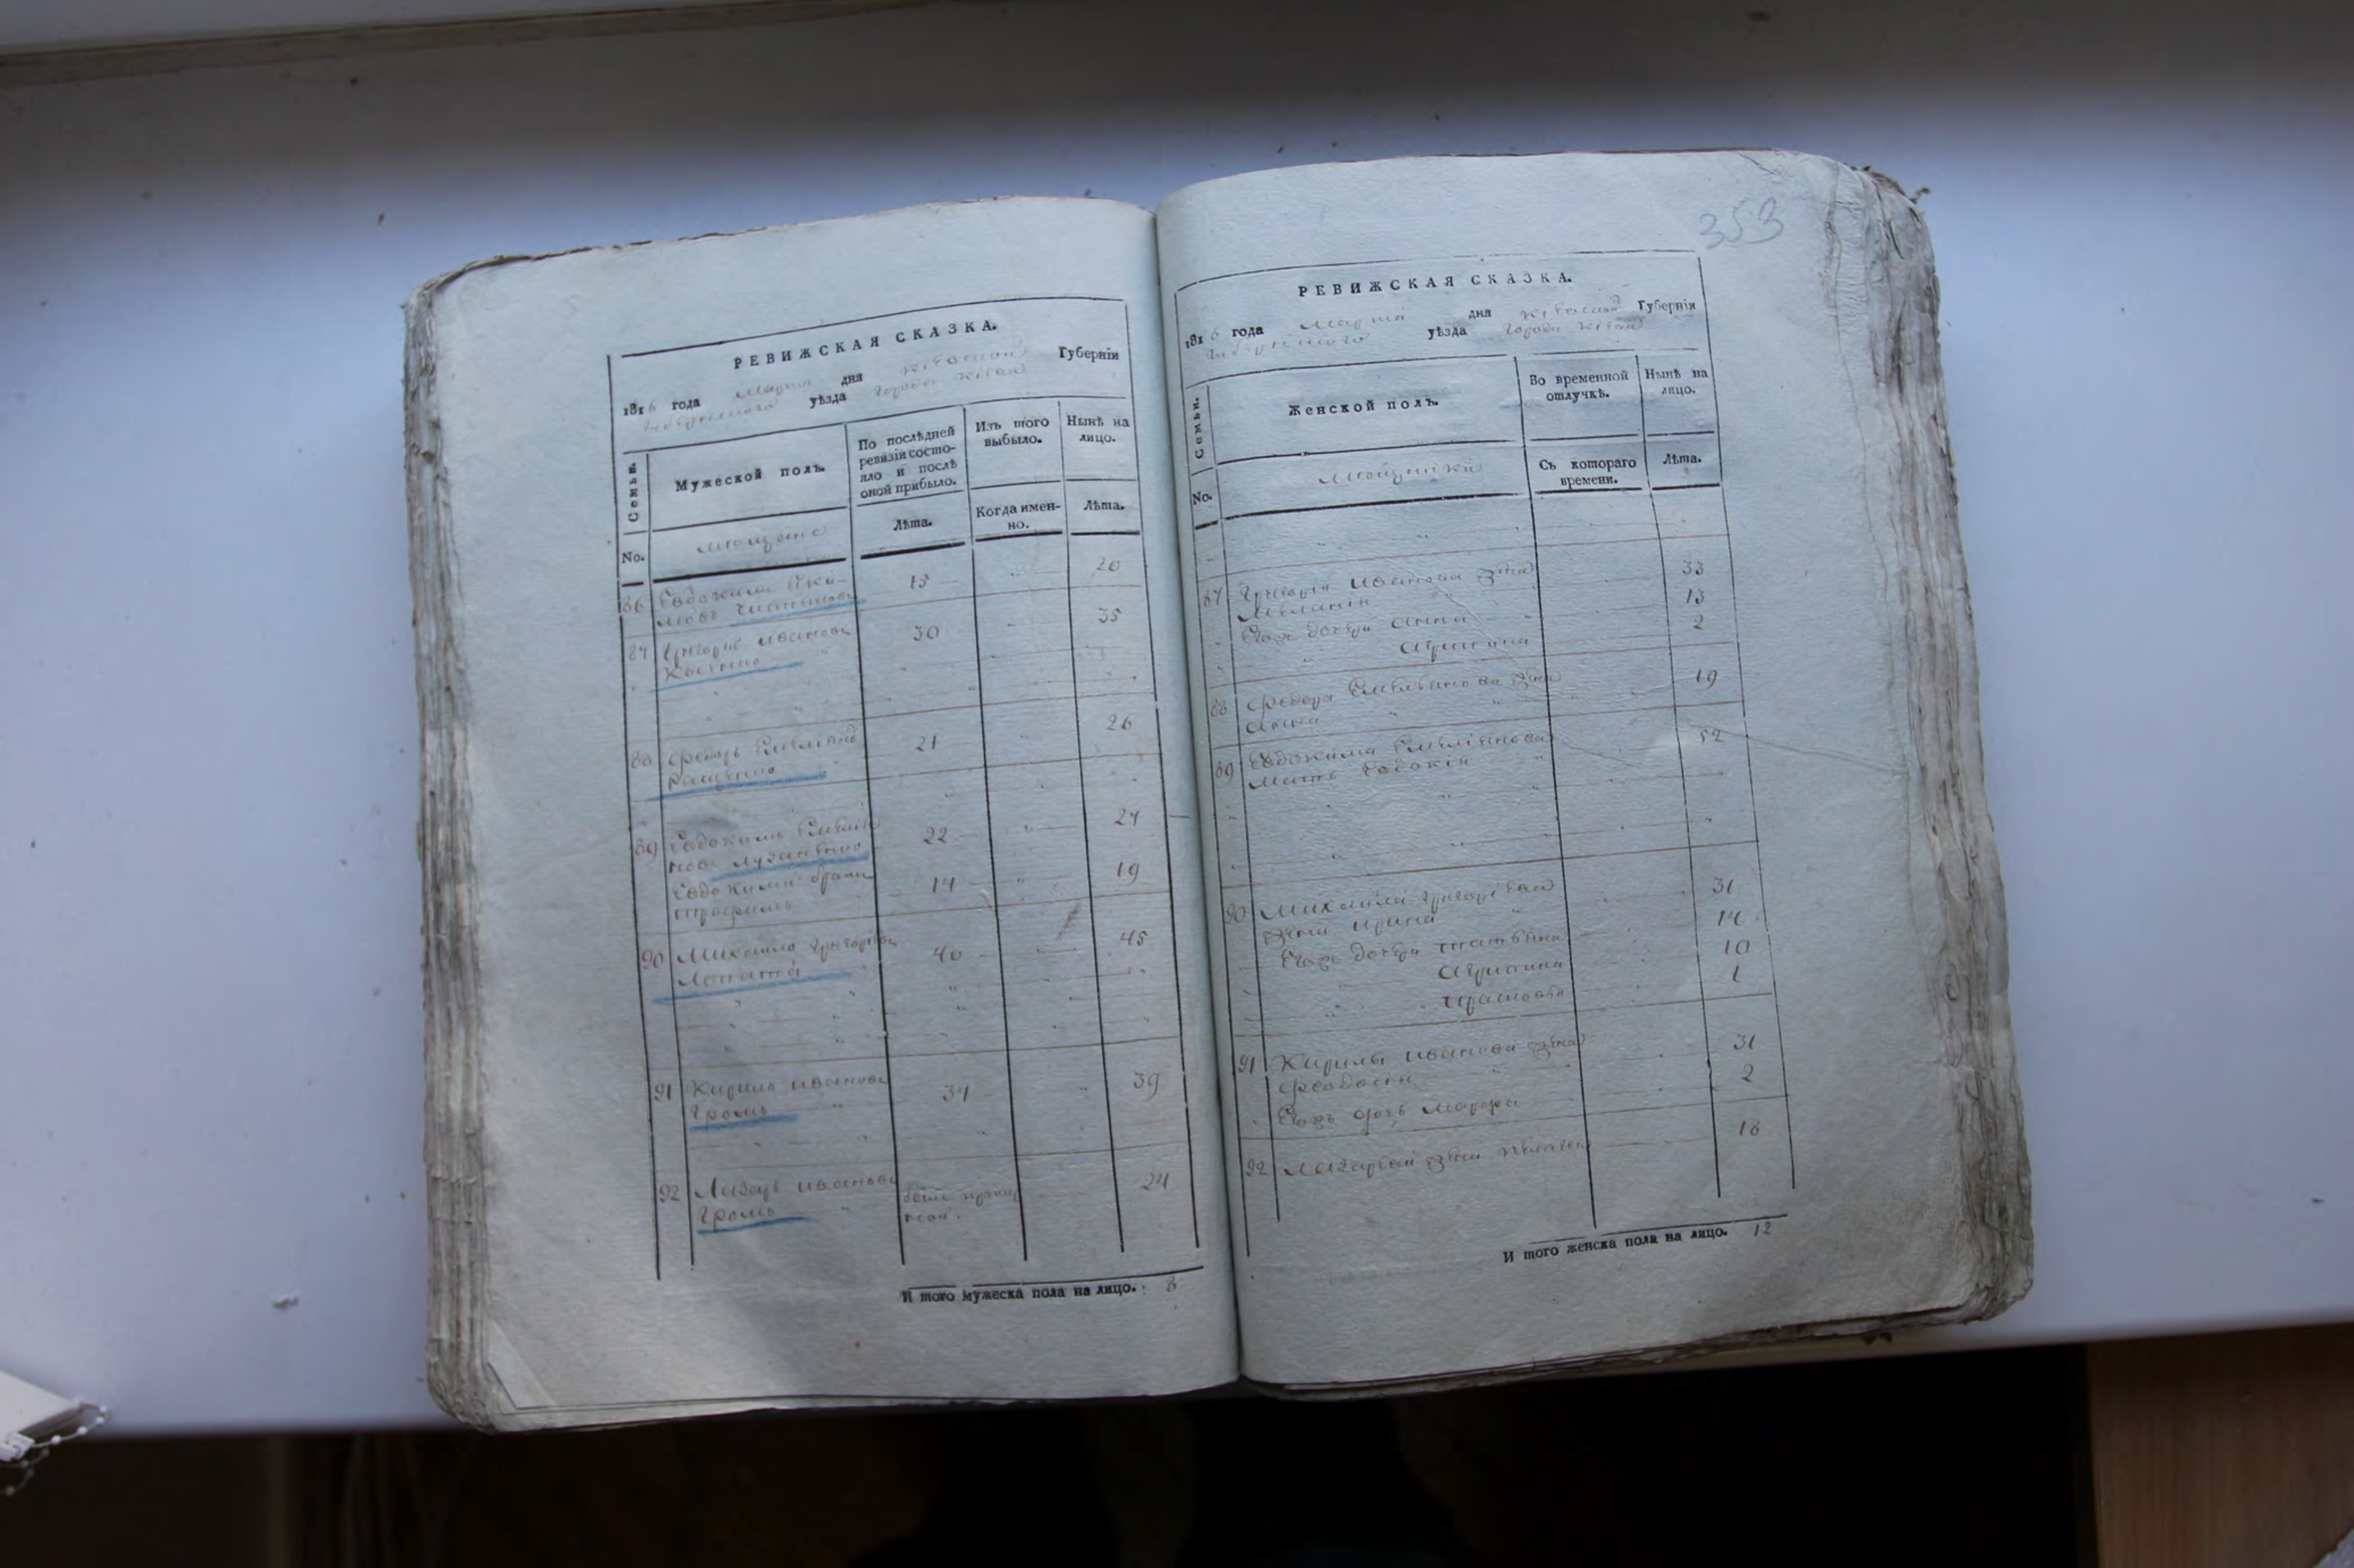 РЕВИЖСКАЯ СКАЗКА.
1816 года Марта дня Кіевской Губерніи
уѣзда Города Кіева
Семьи.
Мужеской полъ.
По послѣдней
ревизіи состо-
яло и послѣ
оной прибыло.
Изъ того
выбыло.
Нынѣ на
лицо.
No.
мещане
Лѣта.
Когда имен-
но.
Лѣта.
86 Евдокимъ Яки- 15 20
мовъ
87 Григорій Ивановъ 30 35
88 Федоръ Емеліяно 21 26
89 Евдокимъ Емелія 22 27
новъ
Евдокима братъ 14 19
Трофимъ
90 Михайло Григорьевъ 40 45
Лопата
91 Кирило Ивановъ 34 39
Громъ
92 Лазарь Ивановъ 24
Громъ
И того мужеска пола на лицо. 8
353
РЕВИЖСКАЯ СКАЗКА.
1816 года Марта дня Кіевской Губерніи
уѣзда Города Кіева
Семьи.
Женской полъ.
Во временной
отлучкѣ.
Нынѣ на
лицо.
No.
мещанки
Съ котораго
времени.
Лѣта.
87 Григорія Иванова жена 33
Меланія
Егожъ дочери Анна 13
Агрипина 2
88 Федора Емельянова жена 19
Анна
89 Евдокима Емеліянова 52
мать Евдокія
90 Михайла Григорьева 31
жена Ирина
Егожъ дочери Татьяна 14
Агрипина 10
Прасковья 1
91 Кирилы Иванова жена 31
Феодосія
Егожъ дочь Марфа 2
92 Лазарева жена Пелагея 18
И того женска пола на лицо. 12